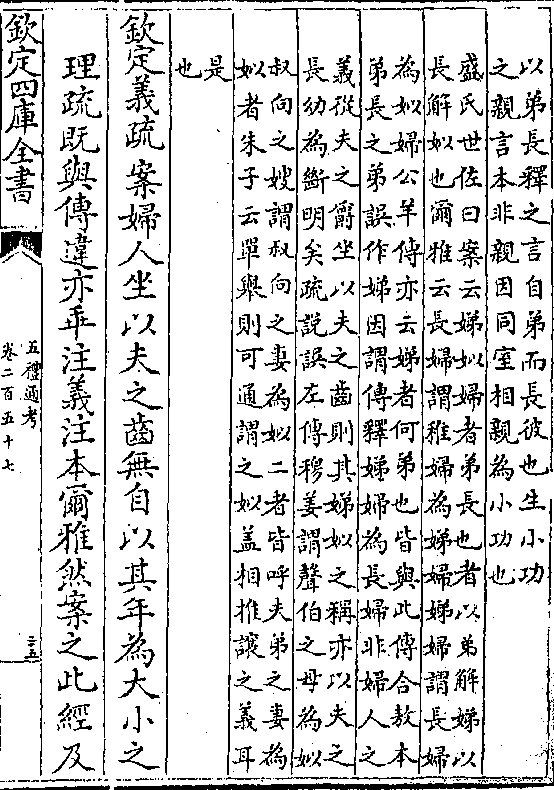 以弟長釋之言自弟而長彼也生小功
之親言本非親因同室相親為小功也
盛氏世佐曰案云娣姒婦者弟長也者以弟解娣以
長解姒也爾雅云長婦謂稚婦為娣婦娣婦謂長婦
為姒婦公羊傳亦云娣者何弟也皆與此傳合敖本
弟長之弟誤作娣因謂傳釋娣婦為長婦非婦人之
義從夫之爵坐以夫之齒則其娣姒之稱亦以夫之
長幼為斷明矣疏說誤左傳穆姜謂聲伯之母為姒
叔向之嫂謂叔向之妻為姒二者皆呼夫弟之妻為
姒者朱子云單舉則可通謂之姒蓋相推讓之義耳
是
也
欽定義疏案婦人坐以夫之齒無自以其年為大小之
理疏既與傳違亦乖注義注本爾雅然案之此經及
欽定四庫全書
五禮通考
卷二百五十七
三五